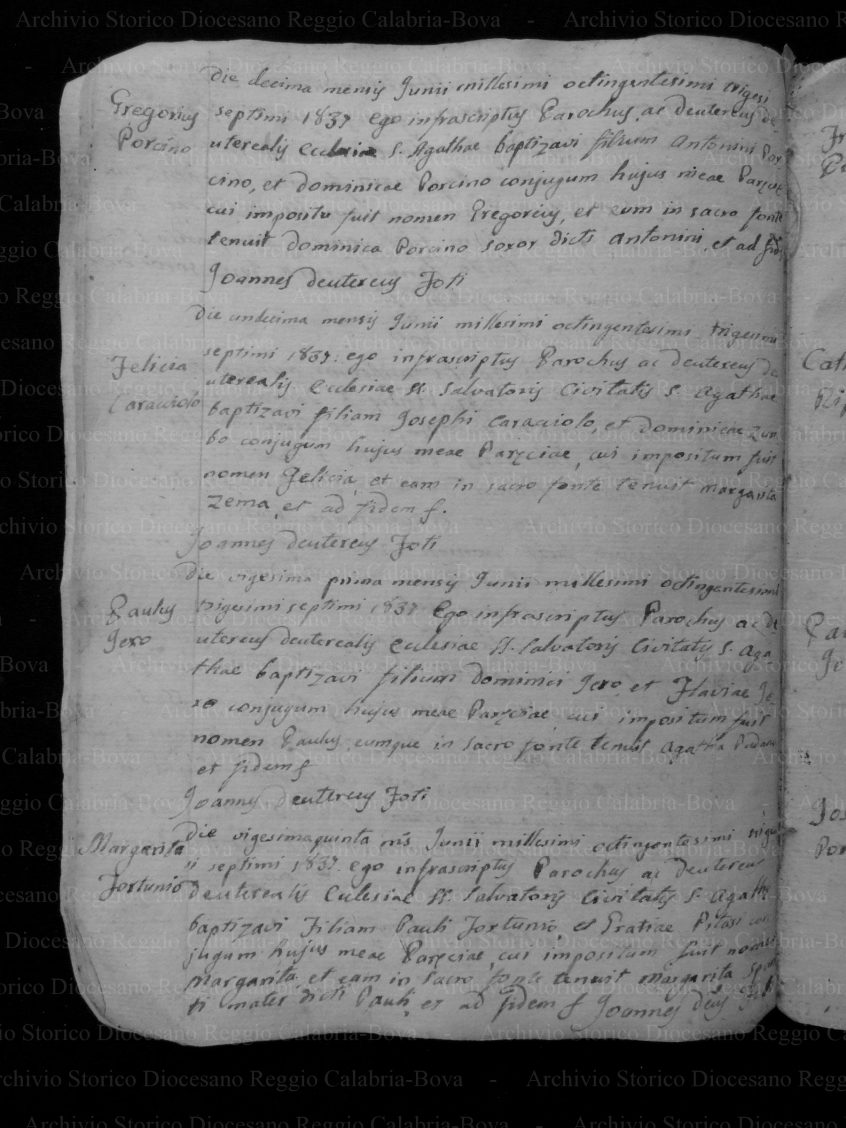 Gregorius
Porcino
Die decima mensis Junii millesimi octingentesimi trigesi
septimi 1837 ego infrascriptus Parochus, ac deutereus de
uterealis Ecclesiae S. Agathae baptizavi filium Antonini Por
cino, et Dominicae Porcino conjugum hujus meae
cui impositu fuit nomen Gregorius, et eum in sacro fonte
tenuit Dominica Porcino soror dicti Antonini, et ad
Joannes deutereus Foti
Felicia
Caracciolo
Die undecima mensis Junii millesimi octingentesimi trigesimi
septimi 1837: ego infrascriptus Parochus ac deutereus de
uterealis Ecclesiae SS. Salvatoris Civitatis S. Agathae
baptizavi filiam Josephi Caracciolo, et Dominicae Zum
bo conjugum hujus meae Parçciae, cui impositum fuit
nomen Felicia, et eam in sacro fonte tenuit Margarita
Zema, et ad fidem f.
Joannes deutereus Foti
Paulus
Jero
Die vigesima prima mensis Junii millesimi octingentesimi
trigesimi septimi 1837 Ego infrascriptus Parochus ac de
utereus deuterealis Ecclesiae SS. Salvatoris Civitatis S. Aga
thae baptizavi filium Dominici Jero, et Flaviae Je
ro conjugum hujus meae Parçciae cui impositum fuit
nomen Paulus, eumque in sacro fonte tenuit Agatha
et fidem f
Joannes Deutereus Foti
Margarita
Fortunio
Die vigesimaquinta mis Junii millesimi octingentesimi
ii septimi 1837. ego infrascriptus Parochus ac deutereus
deuterealis Ecclesiae SS. Salvatoris Civitatis S. Agathe
baptizavi Filiam Pauli Fortunio, et Gratiae Pitasi con
jugum hujus meae Parçciae, cui impositum fuit nomen
Margarita, et eam in sacro fonte tenuit Margarita
ti mater dicti Pauli, et ad fidem f Joannes Deus